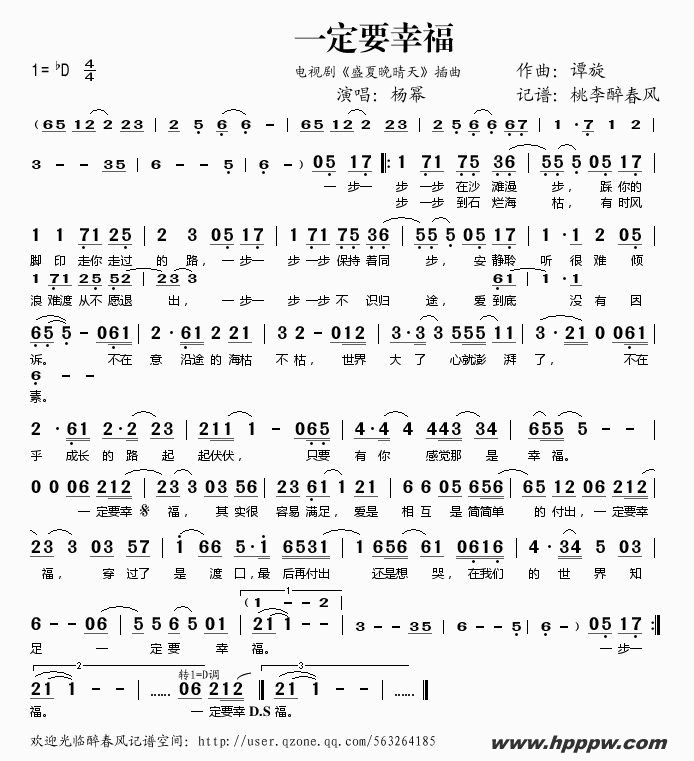 一定要幸福
1=♭D 4/4 电视剧《盛夏晚晴天》插曲 作曲：谭旋
演唱：杨幂 记谱：桃李醉春风
(65 12 2 23 | 2 5 6 6 - | 65 12 2 23 | 2·5 6·6 67 | 1 ·7 1 2 |
3 - - 35 | 6 - - 5 | 6 - ) 05 17 ‖: 1 71 75 36 | 55 5 05 17 |
一步一 步 一步 在沙 滩漫 步， 踩 你的
步 一步 到石 烂海 枯， 有 时风
1 1 71 25 | 2 3 05 17 | 1 71 75 36 | 55 5 05 17 | 1 · 1 2 05 |
脚 印 走你 走过 的 路， 一步一 步 一步 保持 着同 步， 安 静聆 听 很 难 倾
1 71 25 52 | 23 3 61 | 1 · 1
浪 难渡 从不 愿退 出， 一步一 步一步 不 识归 途， 爱 到底 没 有 因
65 5 - 061 | 2 · 61 2 21 | 3 2 - 012 | 3·3 3 555 11 | 3 · 21 0 061 |
诉。 不在 意 沿途 的 海枯 不 枯， 世界 大 了 心就澎 湃 了， 不在
6 - -
素。
2 · 61 2·2 23 | 211 1 - 065 | 4·4 4 443 34 | 655 5 - - |
乎 成长 的 路 起 起伏伏， 只要 有 你 感觉那 是 幸 福。
0 0 06 212 | 23 3 03 56 | 23 61 1 21 | 6 6 05 656 | 65 12 06 212 |
一定要幸 𝄋 福， 其 实很 容易 满足， 爱是 相 互 是 简简单 的 付出， 一定要幸
23 3 03 57 | 1 6 5·1 6531 | 1 656 61 0616 | 4·34 4 03 |
福， 穿 过了 是 渡 口，最 后再付出 还是想 哭， 在我们 的 世 界 知
1
(1 - - 2
6 - - 06 | 5 5 65 01 | 21 1 - - | 3 - - 35 | 6 - - 5 | 6 - ) 05 17 :‖
足 一 定 要 幸 福。 一步一
2 转1=D调 3
21 1 - - | ...... 06 212 | 21 1 - - | ...... ‖
福。 一定要幸 D.S 福。
欢迎光临醉春风记谱空间：http://user.qzone.qq.com/563264185
www.hpppw.com